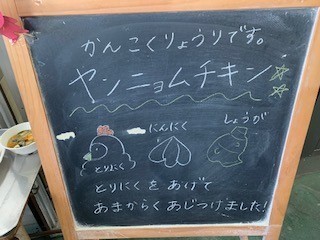 かんこくりょうりです。
ヤンニョムチキン
とりにく
にんにく
しょうが
とりにくをあげて
あまからくあじつけました!